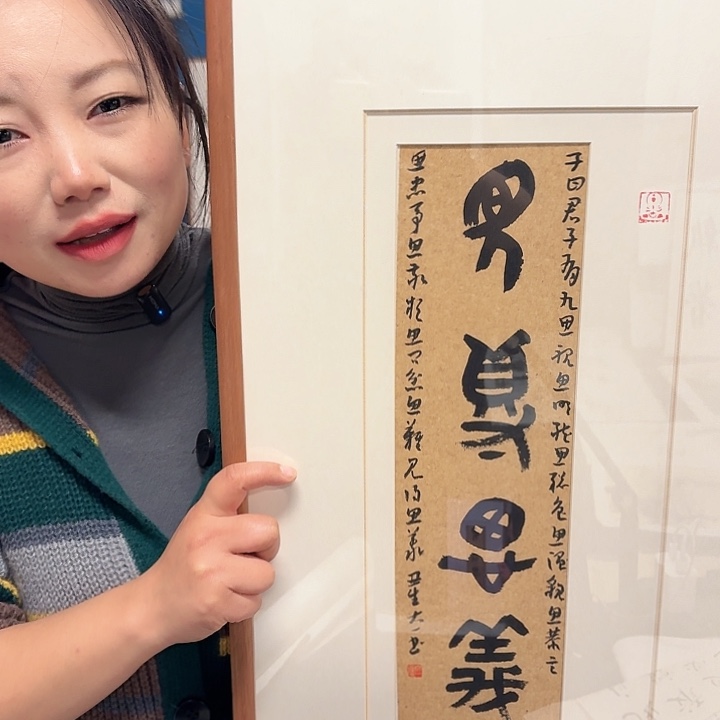 子曰君子有九思視思明聽思聰色思溫貌思恭言
見得思義
思忠事思敬疑思问忿思難見得思義